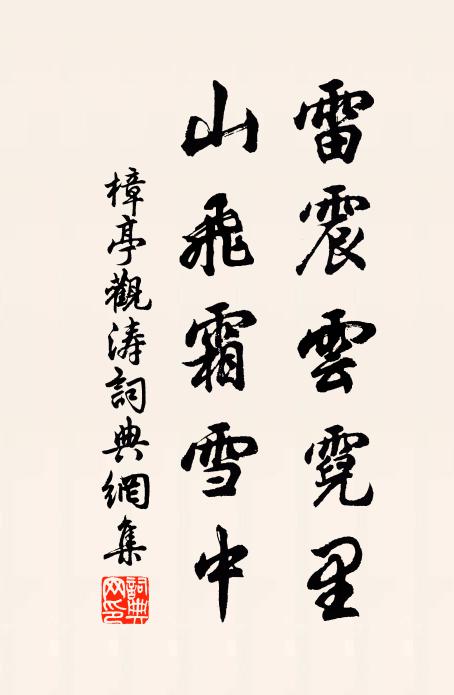 雷震雲霓里
山飛霜雪中
樟亭觀涛詞典網集
詞典網印